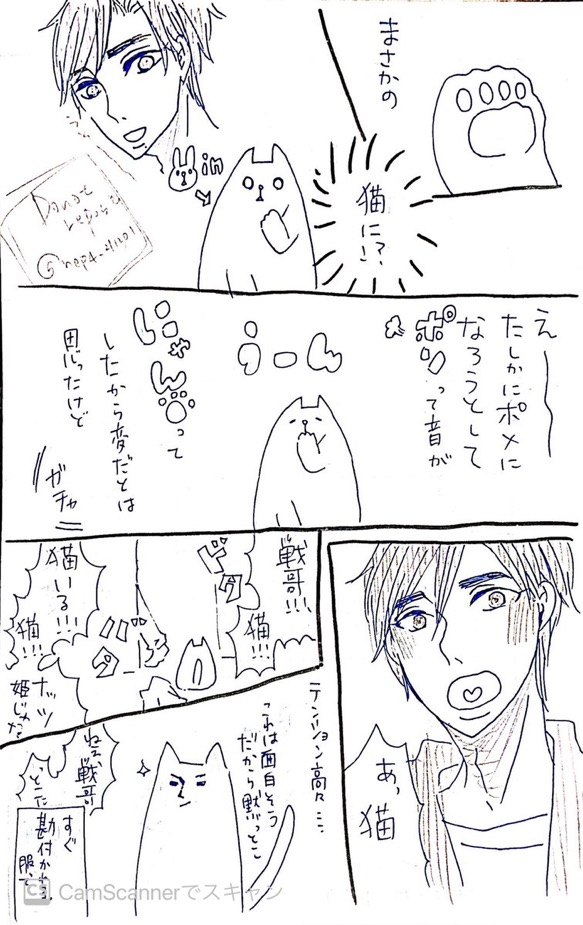 まさかの
猫に!?
in
え〜
たしかにポメに
なろうとして
ポンって音が
うーん
にゃんって
したから変だとは
思ったけど
ガチャ
あっ
猫
戦哥!!!
猫!!!
猫いる!!!
猫!!!
ナッツ
姫じゃ
テンション高々…
これは面白そう
だから黙っとこ
ねえ
戦哥
すぐ
勘付か
服で
CS CamScannerでスキャン